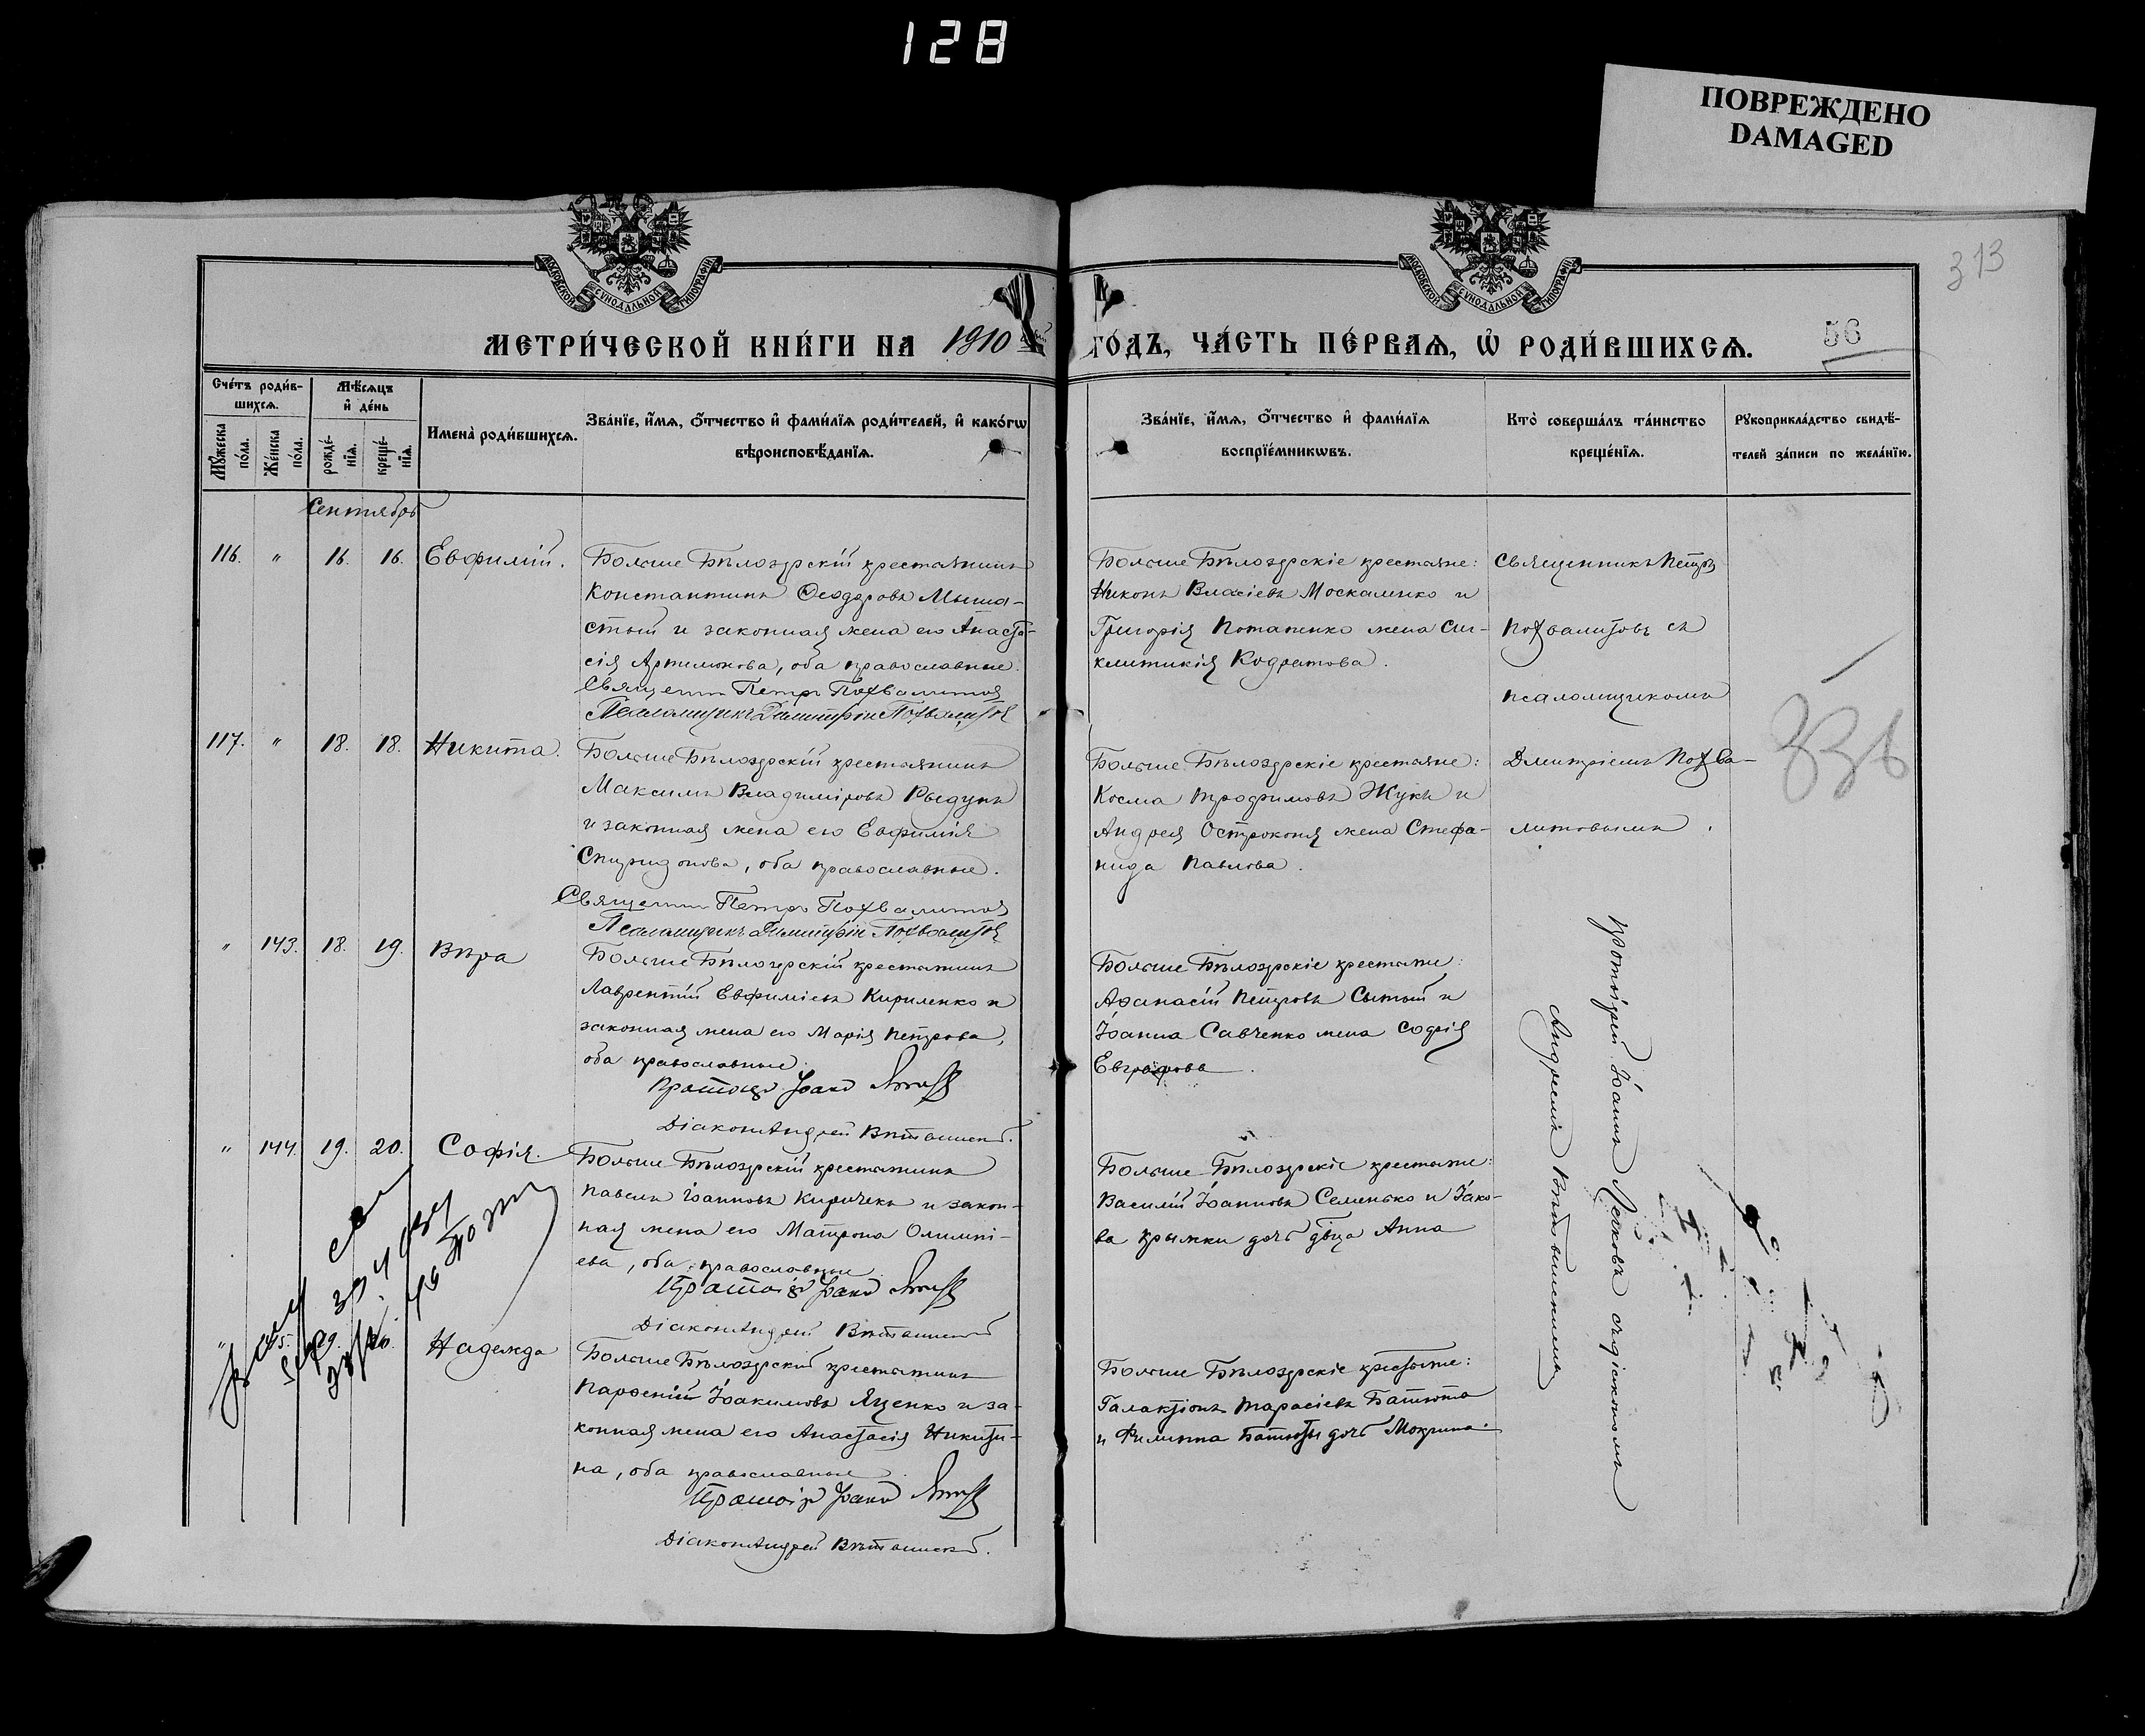 128
ПОВРЕЖДЕНО
DAMAGED
313
МОСКОВСКОЙ СѴНОДАЛЬНОЙ ТИПОГРАФІИ
МОСКОВСКОЙ СѴНОДАЛЬНОЙ ТИПОГРАФІИ
МЕТРИ́ЧЕСКОЙ КНИ́ГИ НА 1910
ГОДЪ, ЧА́СТЬ ПЕ́РВАѦ, Ѽ РОДИ́ВШИХСѦ.
56
Сче́тъ роди́в-
шихсѧ.
Мꙋ́жеска по́ла.
Же́нска по́ла.
Мѣ́сѧцъ
и҆ де́нь
рожде́-
нїѧ.
креще́-
нїѧ.
Имена̀ роди́вшихсѧ.
Зва́нїе, и҆́мѧ, ѻ҆́тчество и҆ фами́лїѧ роди́телей, и҆ како́гѡ
вѣроисповѣ́данїѧ.
Зва́нїе, и҆́мѧ, ѻ҆́тчество и҆ фами́лїѧ
воспрїе́мникѡвъ.
Кто̀ соверша́лъ та́инство
креще́нїѧ.
Рꙋкоприкла́дство свидѣ́-
телей за́писи по жела́нїю.
Сентябрь
116. " 16. 16. Евфимій.
Больше Бѣлозерскій крестьянинъ
Константинъ Ѳеодоровъ Мыша-
стый и законная жена его Анаста-
сія Артемонова, оба православные.
Священ Петръ Похвалитов
Псаломщикъ Димитрій Похвалитов
Больше Бѣлозерскіе крестьяне:
Никонъ Власіевъ Москаленко и
Григорія Потапенко жена Син-
клитикія Кодратова.
Священникъ Петръ
Похвалитовъ съ
псаломщикомъ
Дмитріемъ Похва-
литовымъ.
117. " 18. 18. Никита.
Больше Бѣлозерскій крестьянинъ
Максимъ Владиміровъ Рыдунъ
и законная жена его Евфимія
Спиридонова, оба православные.
Священ Петръ Похвалитов
Псаломщикъ Димитрій Похвалитов
Больше Бѣлозерскіе крестьяне:
Косма Трофимовъ Жукъ и
Андрея Остроконя жена Стефа-
нида Павлова.
" 143. 18. 19. Вѣра
Больше Бѣлозерскій крестьянинъ
Лаврентій Евфиміевъ Кириленко и
законная жена его Марія Петрова,
оба православные.
Протоіер Іоанн
Діаконъ Андрей
Больше Бѣлозерскіе крестьяне:
Аѳанасій Петровъ Сытый и
Іоанна Савченко жена Софія
Евграфова.
Протоіерей Іоаннъ съ діакономъ
Андреемъ
" 144. 19. 20. Софія.
Больше Бѣлозерскій крестьянинъ
Павелъ Іоанновъ Киричекъ и закон-
ная жена его Матрона Олимпі-
ева, оба православные
Протоіер Іоанн
Діаконъ Андрей
Больше Бѣлозерскіе крестьяне:
Василій Іоанновъ Семенько и Іако-
ва Крыжки дочь дѣвица Анна
Надежда
Больше Бѣлозерскій крестьянинъ
Парѳеній Іоакимовъ Яценко и за-
конная жена его Анастасія Никити-
на, оба православные.
Протоіер Іоанн
Діаконъ Андрей
Больше Бѣлозерскіе крестьяне:
Галактіонъ Тарасіевъ Батюта
и Филиппа Батюты дочь Мокрина.